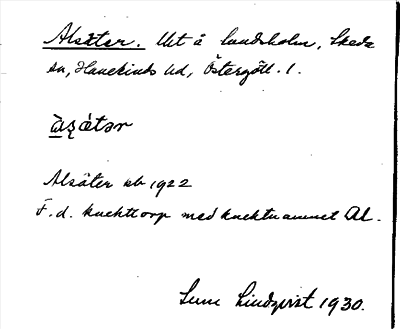 Alsäter. Utt å Lundsholm, Skeda
sn, Hanekinds hd, Östergötl. l.
Alsäter jb 1922
F. d. knekttorp med knektnamnet Al.
Sune Lindqvist 1930.